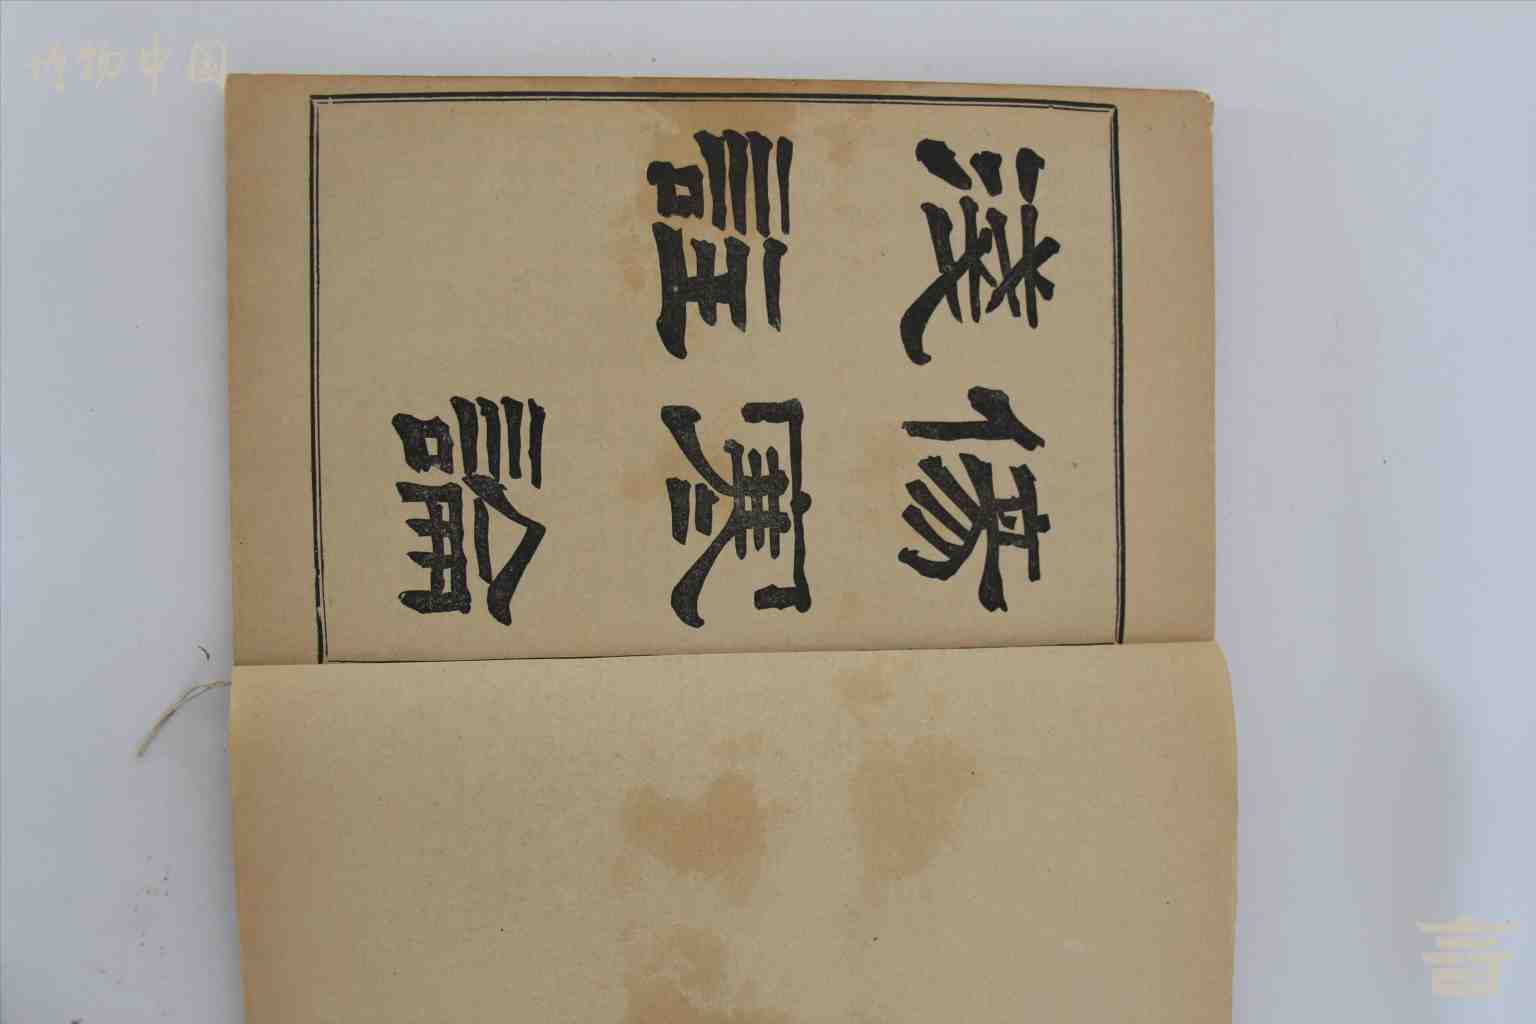 傷寒論
淺註
博物中国